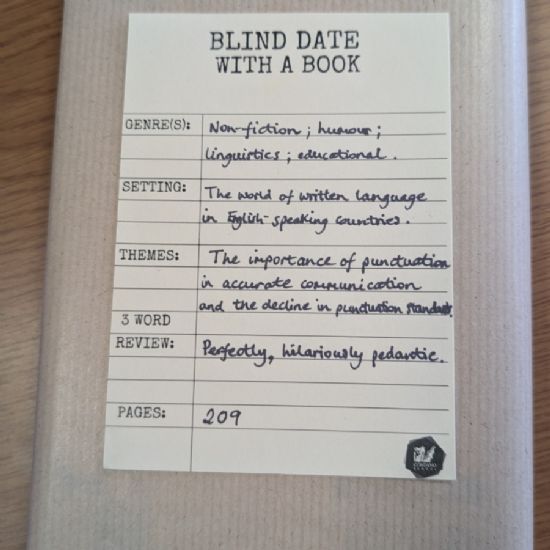 BLIND DATE
WITH A BOOK
GENRE(S): Non-fiction ; humour ;
linguistics ; educational .
SETTING: The world of written language
in English-speaking countries .
THEMES: The importance of punctuation
in accurate communication
and the decline in punctuation standards.
3 WORD
REVIEW: Perfectly, hilariously pedantic.
PAGES: 209